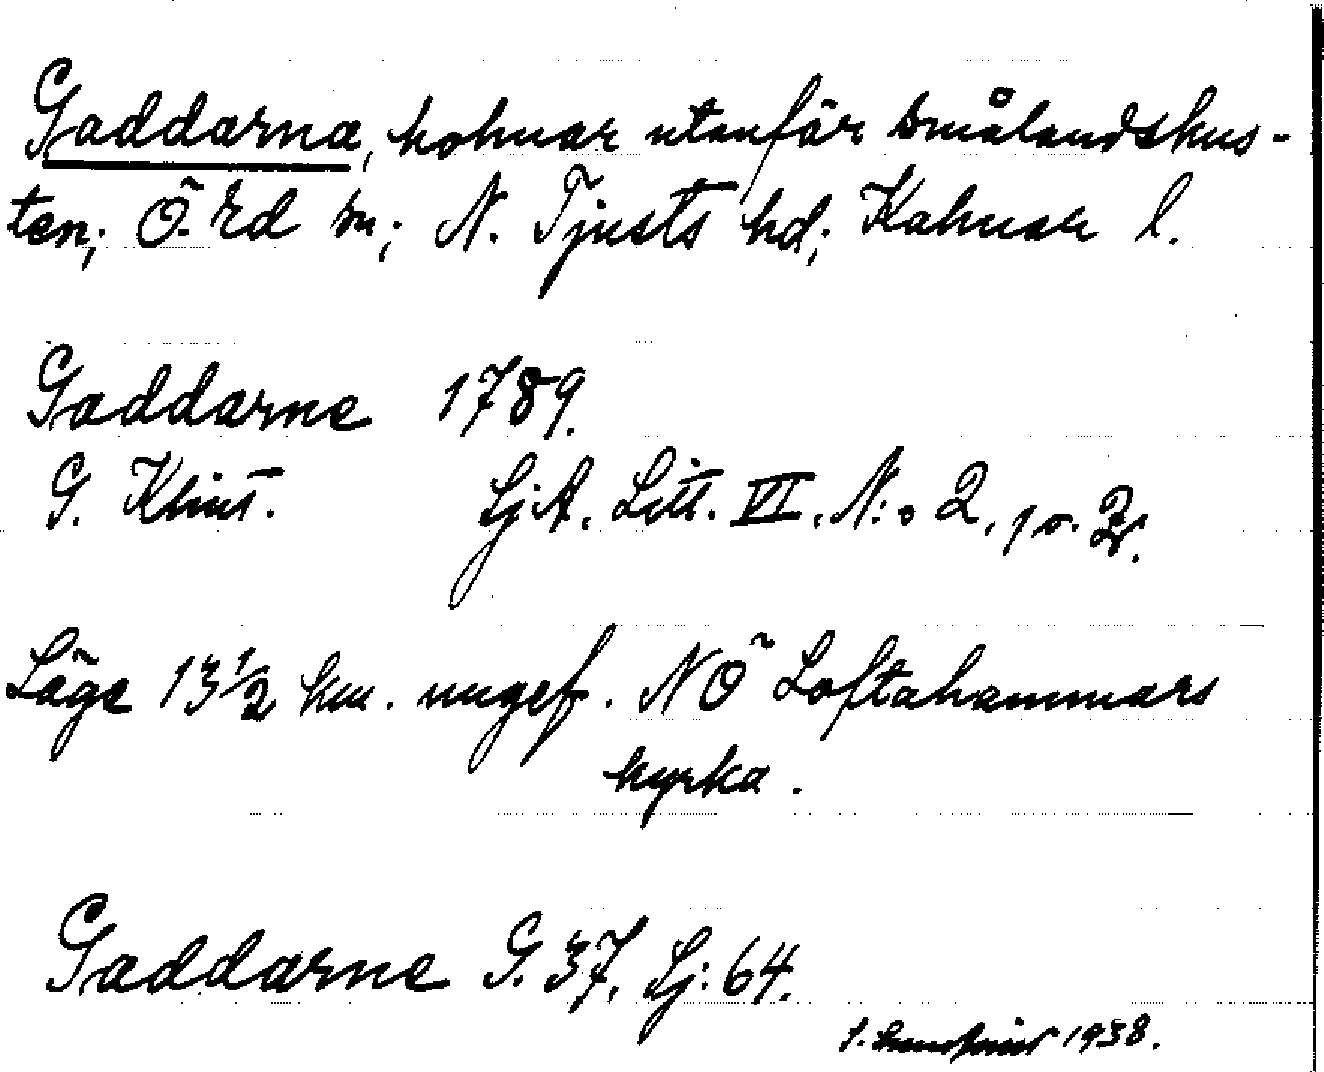 Gaddarna, holmar utanför Smålandskus-
ten; Ö. Ed sn; N. Tjusts hd; Kalmar l.
Gaddarne 1789.
G. Klint. Sj.A. Litt. VI. N:o 2, 1 o. 2.
Läge 13 1/2 km. ungef. NÖ Loftahammars
kyrka.
Gaddarne G. 37, Sj: 64.
1938.